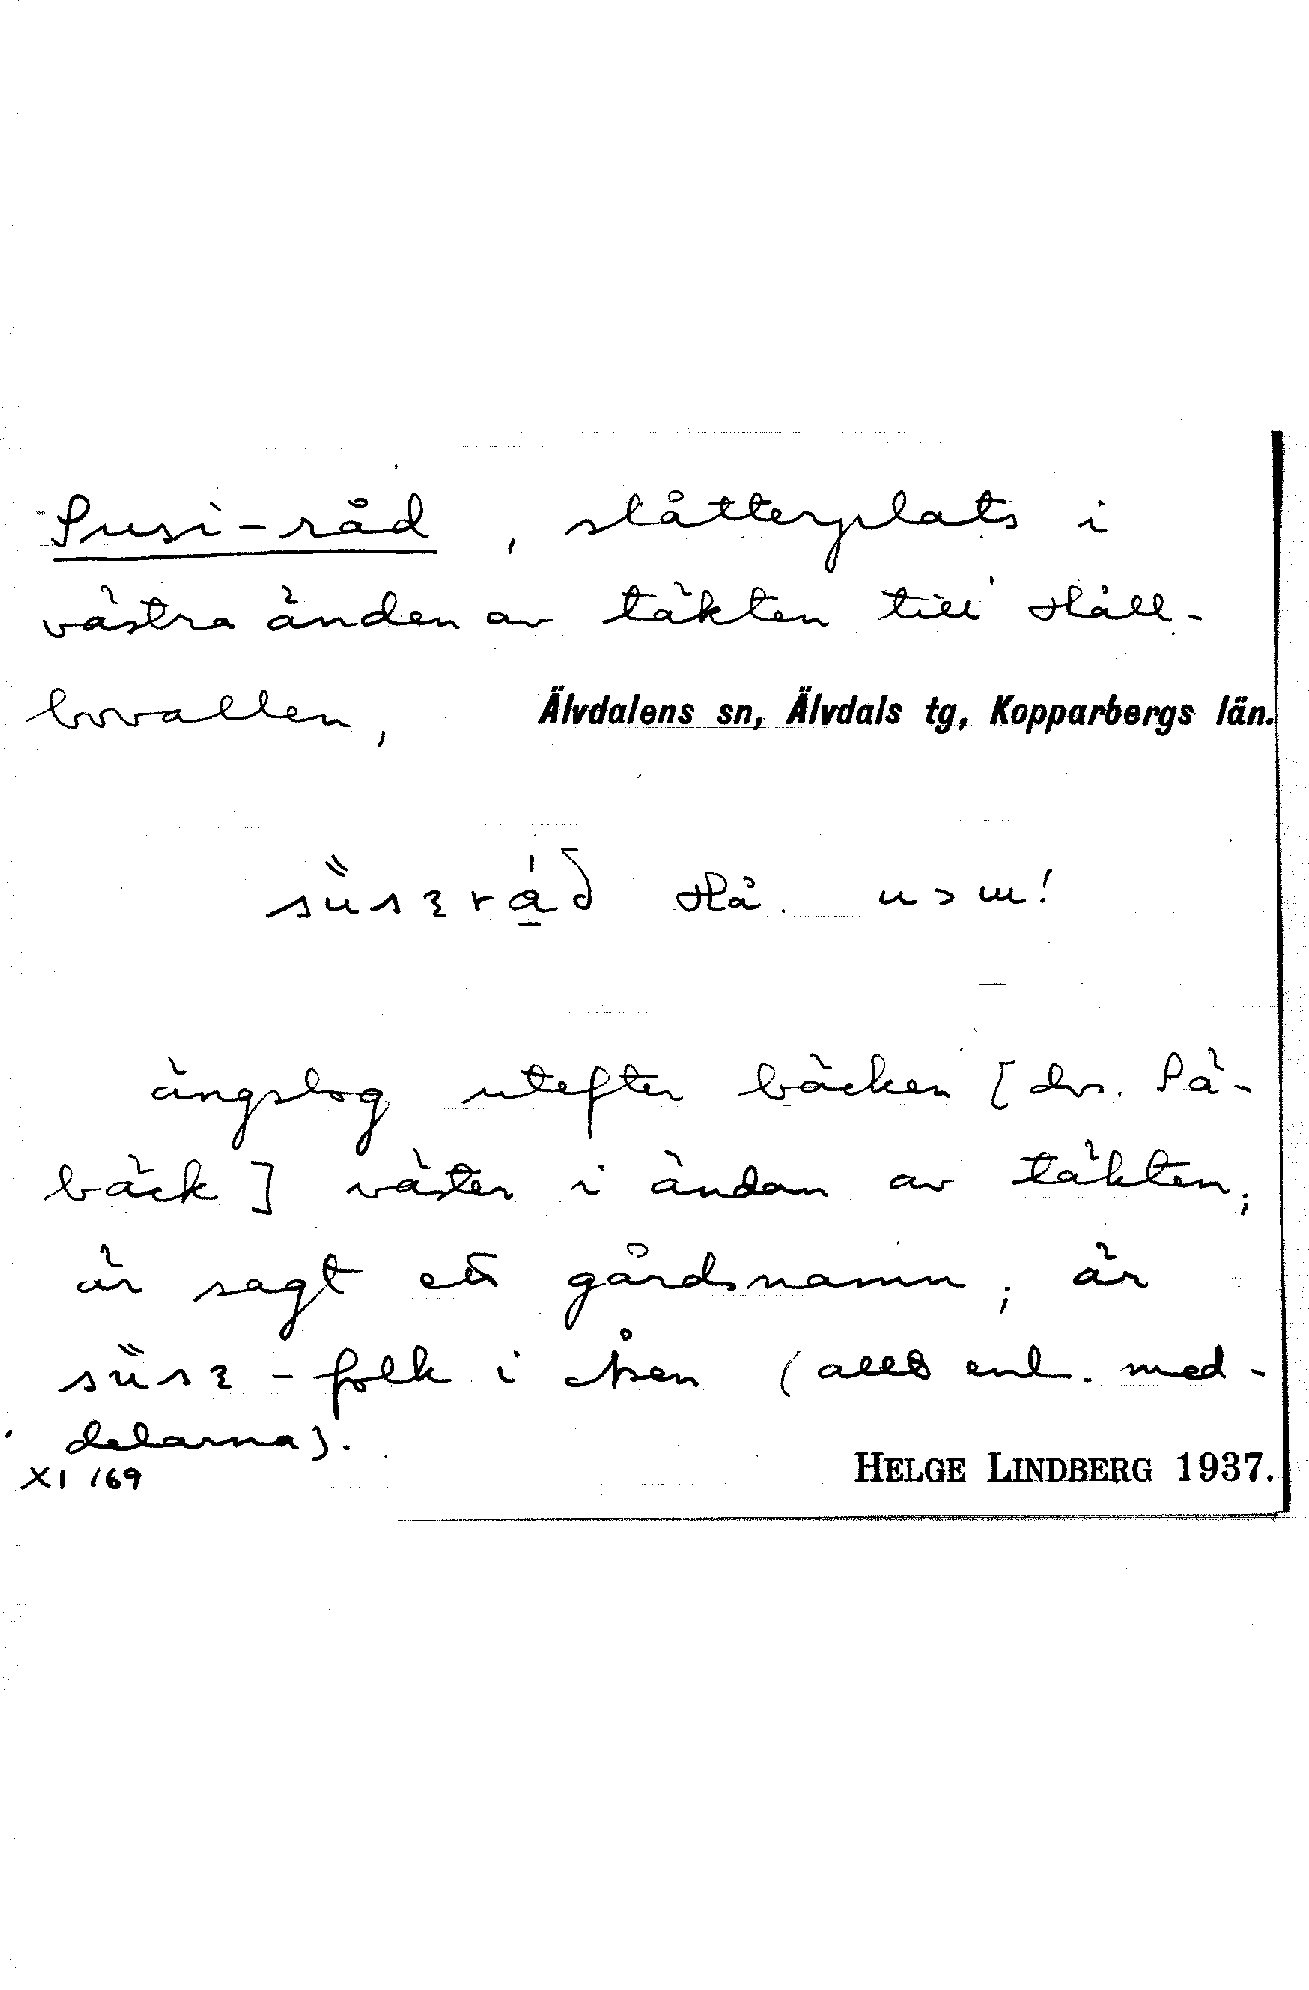 Susi-råd, slåtterplats i
västra änden av täkten till Håll-
bovallen, Älvdalens sn, Älvdals tg, Kopparbergs län.
Hå.
ängslog utefter bäcken [dvs. Så-
bäck] väster i ändan av täkten;
är sagt ett gårdsnamn; är
-folk i Åsen (allt enl. med-
delarna).
XI /69 HELGE LINDBERG 1937.